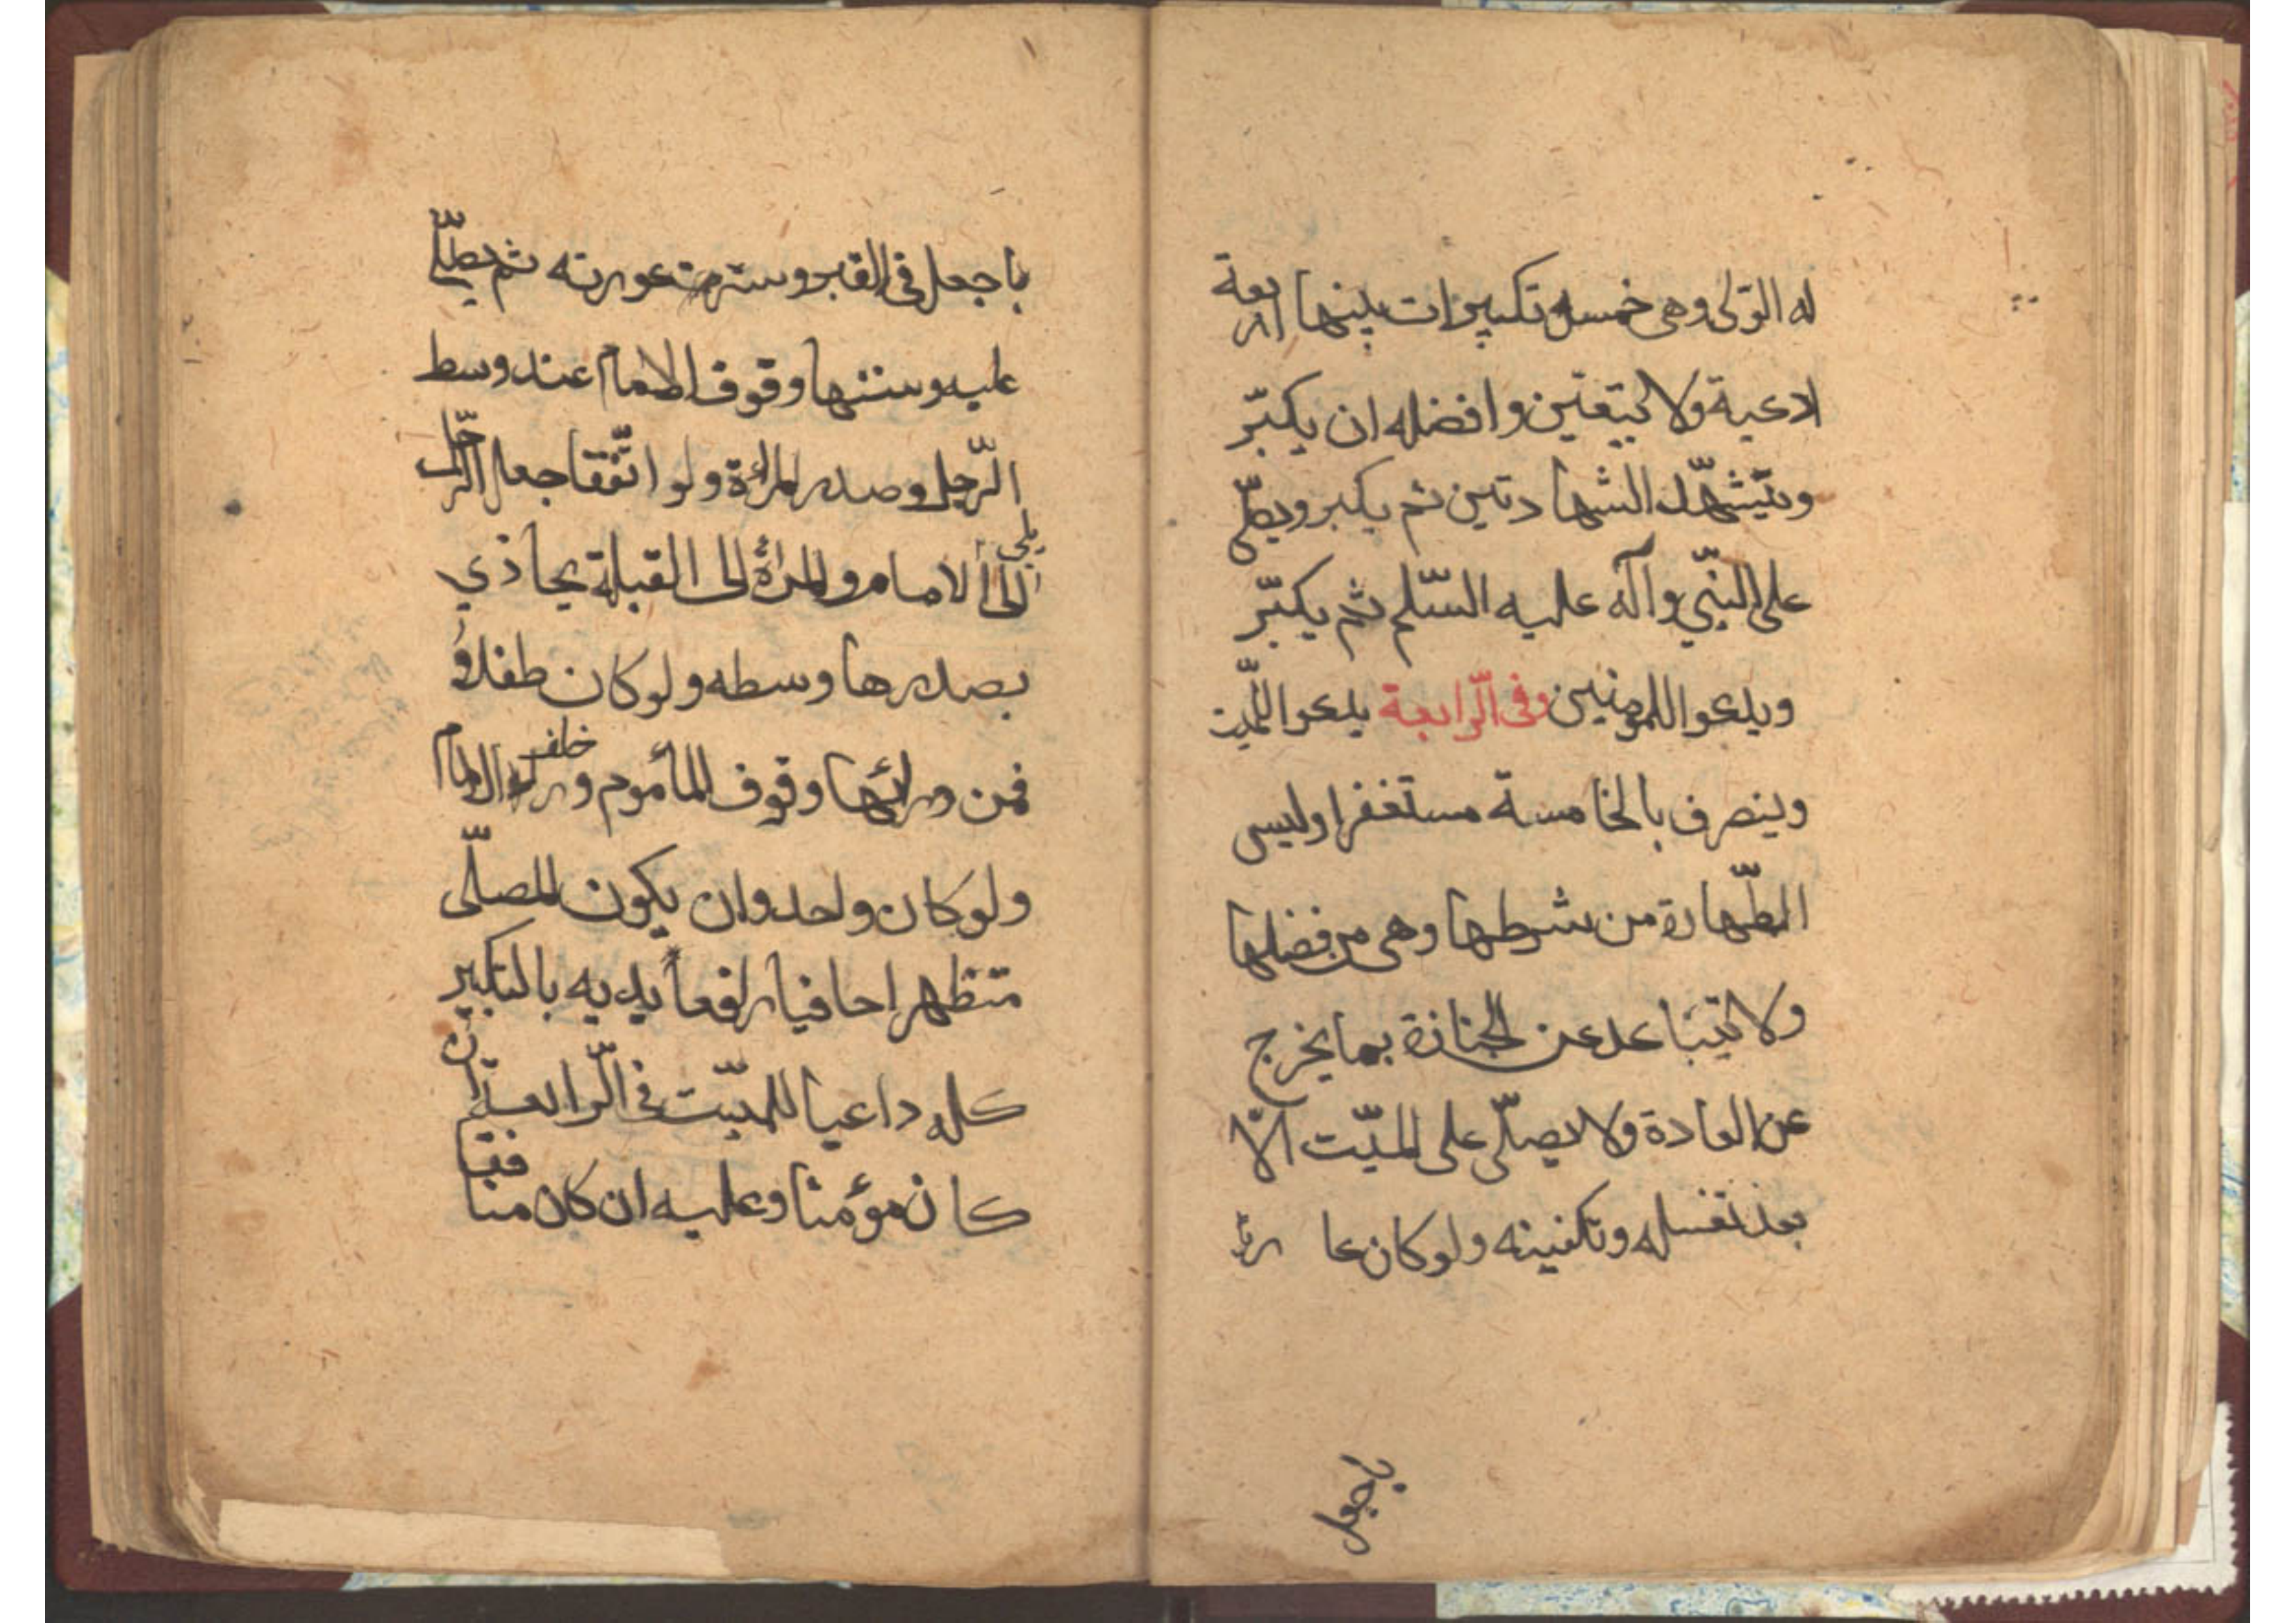 له التولى وهى خمسة تكبيرات بينها اربعة
ادعية ولا يتعين وافضله ان يكبّر
ويتشهّد الشهادتين ثم يكبر ويصلّى
على النبّي وآله عليه السّلم ثم يكبّر
ويدعوا للمومنين وفى الرّابعة يدعوا للميّت
وينصرف بالخامسة مستغفرا وليس
الطّهارة من شرطها وهى من فضلها
ولا يتباعد عن الجنازة بما يخرج
عن العادة ولا يصلّى على الميّت الّا
بعد تغسله وتكفينه ولو كان عا ريا
با جعل
با جعل فى القبر وسترت عورته ثم يصلّى
عليه وسننها وقوف الامام عند وسط
الرّجل وصدر المرأة ولو اتّفقا جعل الرّجل
يلى
الى الامام والمرأة الى القبلة يحاذي
بصدرها وسطه ولو كان طفلا
فمن ورائها وقوف المأموم وراء الامام
خلف
ولو كان واحد وان يكون المصلّى
متطهرا حافيا رافعاً يديه بالتكبير
كله داعيا للميّت فى الرّابعة ان
كان مؤمنا وعليه ان كان منافقا